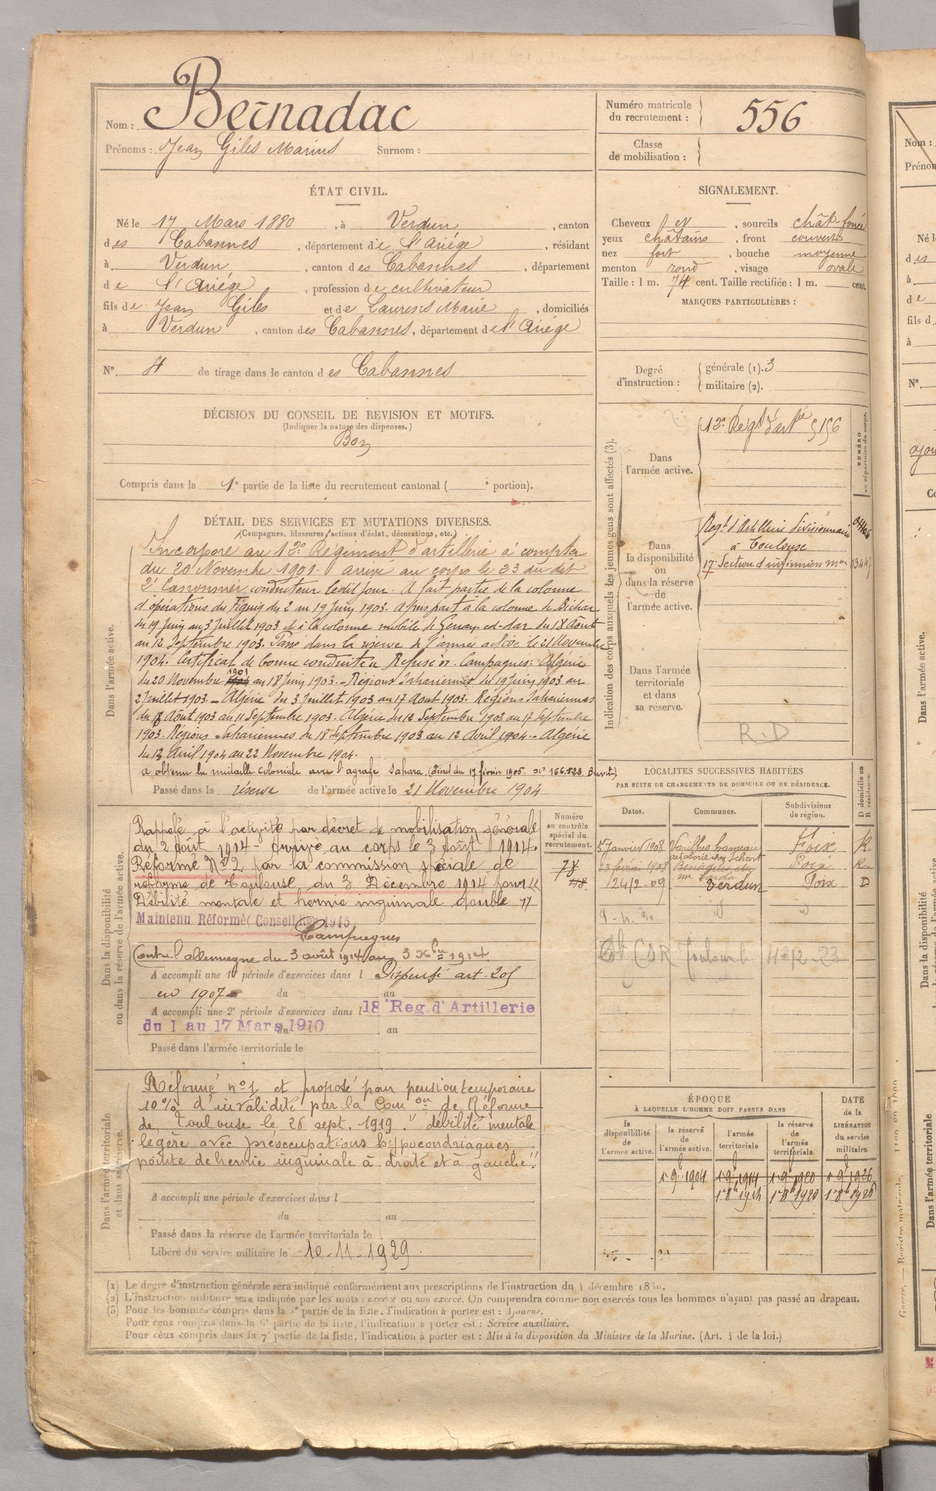 Nom : Bernadac
Prénoms : Jean Giles Marius Surnom :
Numéro matricule du recrutement : 556
Classe de mobilisation :
ÉTAT CIVIL.
Né le 17 Mars 1880, à Verdun, canton
des Cabannes, département de l'Ariége, résidant
à Verdun, canton des Cabannes, département
de l'Ariége, profession de cultivateur
fils de Jean Giles et de Laurens Marie, domiciliés
à Verdun, canton des Cabannes, département de l'Ariége
N° de tirage dans le canton des Cabannes
DÉCISION DU CONSEIL DE REVISION ET MOTIFS.
(Indiquer la nature des dispenses.)
Bon
Compris dans la 1e partie de la liste du recrutement cantonal ( portion).
SIGNALEMENT.
Cheveux et, sourcils chât. foncé
yeux châtains, front couvert
nez fort, bouche moyenne
menton rond, visage ovale
Taille : 1 m. 74 cent. Taille rectifiée : 1 m. cent.
MARQUES PARTICULIÈRES :
Degré d'instruction : générale (1). 3
militaire (2).
DÉTAIL DES SERVICES ET MUTATIONS DIVERSES.
(Campagnes, blessures, actions d'éclat, décorations, etc.)
Dans l'armée active.
Incorporé au 12e Régiment d'artillerie à compter
du 20 Novembre 1901. arrivé au corps le 23 du dit
2e Canonnier conducteur le dit jour. A fait partie de la colonne
d'opérations du Figuig du 2 au 19 Juin 1903. a pris part à la colonne de Béchar
du 19 Juin au 3 Juillet 1903 et à la colonne mobile de du 18 Août
au 12 Septembre 1903. Passé dans la réserve de l'armée active le 21 Novembre
1904. Certificat de bonne conduite Refusé. Campagnes: Algérie
du 20 Novembre 1901 au 18 Juin 1903. - Régions Sahariennes du 19 Juin 1903 au
2 Juillet 1903. - Algérie du 3 Juillet 1903 au 17 Aout 1903. Régions Sahariennes
du 18 Août 1903 au 11 Septembre 1903. Algérie du 12 Septembre 1903 au 17 Septembre
1903. Régions Sahariennes du 18 Septembre 1903 au 12 Avril 1904. - Algérie
du 13 Avril 1904 au 22 Novembre 1904.
a obtenu la médaille coloniale avec l'agrafe Sahara
Passé dans la réserve de l'armée active le 21 Novembre 1904
Indication des corps auxquels les jeunes gens sont affectés (3).
Dans l'armée active.
12e Regt d'art
Dans la disponibilité ou dans la réserve de l'armée active.
Regt d'Artillerie divisionnaire
à Toulouse
17e Section d'infirmiers
Dans l'armée territoriale et dans sa réserve.
R.D
Dans la disponibilité ou dans la réserve de l'armée active.
Rappelé à l'activité par décret de mobilisation générale
du 2 août 1914. arrivé au corps le 3 août 1914.
Réformé N°2 par la commission spéciale de
réforme de Toulouse du 3 Décembre 1914 pour "
Débilité mentale et hernie inguinale double "
Maintenu Réformé Conseil 1915
Campagnes
Contre l'allemagne du 3 août 1914 au 3 Xbre 1914
A accompli une 1e période d'exercices dans l Dispensé art. 205
en 1907 du au
A accompli une 2e période d'exercices dans l 18e Reg d'Artillerie
du 1 au 17 Mars 1910 au
Passé dans l'armée territoriale le
Numéro au contrôle spécial du recrutement.
LOCALITÉS SUCCESSIVES HABITÉES
PAR SUITE DE CHANGEMENTS DE DOMICILE OU DE RÉSIDENCE.
Dates. Communes. Subdivisions de région.
5 Janvier 1908 Foix R
Foix R
24/2-09 Verdun Foix D
Dans l'armée territoriale et dans sa réserve.
Réformé n°1 et proposé pour pension temporaire
10% d'invalidité par la Comon de Réforme
de Toulouse le 26 sept. 1919. "débilité mentale
légère avec préoccupations hypocondriaques
pointe de hernie inguinale à droite et à gauche."
A accompli une période d'exercices dans l
du au
Passé dans la réserve de l'armée territoriale le
Libéré du service militaire le 10-11-1929.
ÉPOQUE
À LAQUELLE L'HOMME DOIT PASSER DANS
la disponibilité de l'armée active. la réserve de l'armée active. l'armée territoriale. la réserve de l'armée territoriale. DATE de la LIBÉRATION du service militaire.
(1) Le degré d'instruction générale sera indiqué conformément aux prescriptions de l'instruction du 4 décembre 1889.
(2) L'instruction militaire sera indiquée par les mots : exercé ou non exercé. On comprendra comme non exercés tous les hommes n'ayant pas passé au drapeau.
(3) Pour les hommes compris dans la 5e partie de la liste, l'indication à porter est : Ajourné.
Pour ceux compris dans la 6e partie de la liste, l'indication à porter est : Service auxiliaire.
Pour ceux compris dans la 7e partie de la liste, l'indication à porter est : Mis à la disposition du Ministre de la Marine. (Art. 4 de la loi.)